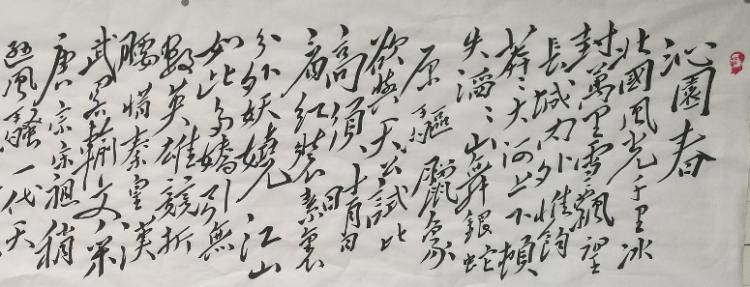 沁園春
北國風光千里冰
封萬里雪飄望
長城內外惟餘
莽々大河上下頓
失滔々山舞銀蛇
原驅臘象
欲與天公試比
高須晴日
看紅裝素裹
分外妖嬈江山
如此多嬌引無
數英雄競折
腰惜秦皇漢
武畧輸文采
唐宗宋祖稍
遜風騷一代天